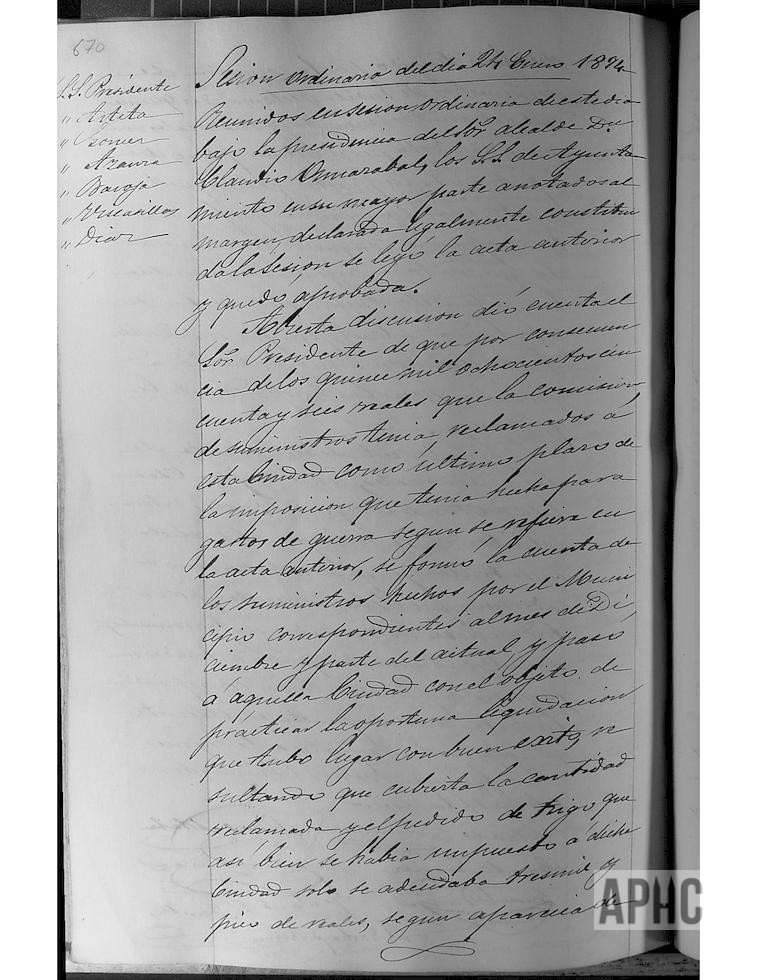 670
S.S. Presidente
" Arteta
" Azarra
" Baroja
" Diaz
Sesion ordinaria del dia 24 Enero 1874
Reunidos en sesion ordinaria de este dia
bajo la presidencia del Sor. alcalde Dn.
Claudio los S.S. de Ayunta
miento en su mayor parte anotados al
margen, declarada legalmente constitui
da la sesion se leyó la acta anterior
y quedó aprobada.
Abierta discusion dió cuenta el
Sor. Presidente de que por consecuen
cia de los quince mil ochocientos cin
cuenta y seis reales que la comision
de suministros tenia, reclamados á
esta Ciudad como último plazo de
la imposicion que tenia hecha para
gastos de guerra segun se refiere en
la acta anterior, se formó la cuenta de
los suministros hechos por el Muni
cipio correspondientes al mes de Di
ciembre y parte del actual, y pasó
á aquella Ciudad con el objeto de
practicar la oportuna liquidacion
que tubo lugar con buen exito, re
sultando que cubierta la cantidad
reclamada y el pedido de trigo que
así bien se habia impuesto á dicha
Ciudad solo se adeudaba tres mil y
pico de reales, segun aparecia de
APHC